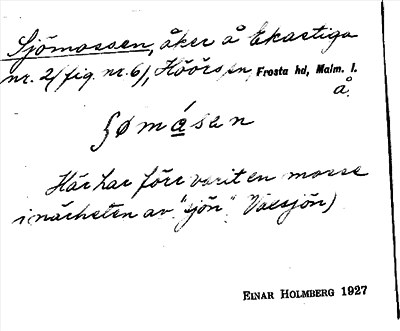 Sjömossen, åker å Ekastiga
nr. 2 (fig. nr. 6), Höörs sn, Frosta hd, Malm. l.
å.
ʃømåsen
Här har förr varit en mosse
i närheten av "sjön" Vaesjön)
EINAR HOLMBERG 1927